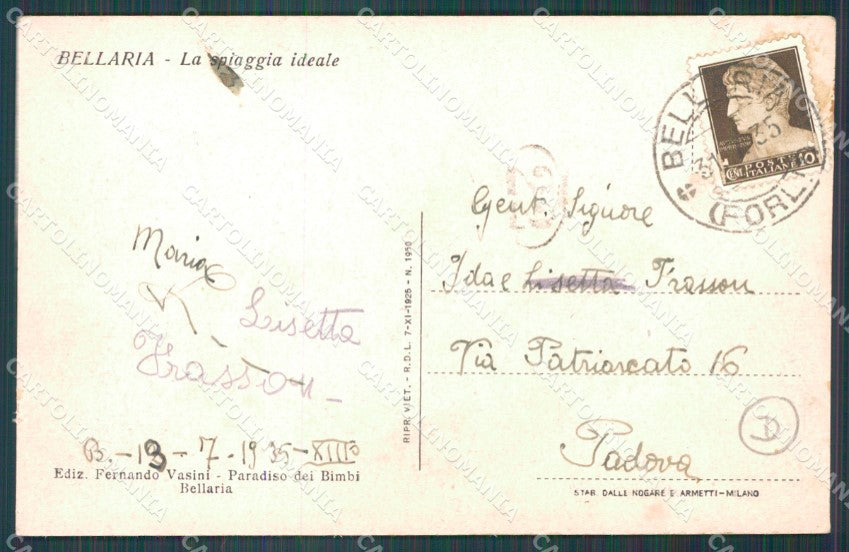 BELLARIA - La spiaggia ideale
Maria
Lisetta
Frasson
B. - 13 - 7 - 1935 - XIII°
Ediz. Fernando Vasini - Paradiso dei Bimbi
Bellaria
RIPR. VIET. - R.D.L. 7-XI-1925 - N. 1950
BELLARIA
35
(FORLI)
POSTE
ITALIANE
CENT. 10
Gent. Signore
Ida e Lisetta Frasson
Via Patriarcato 16
Padova
D
STAB. DALLE NOGARE E ARMETTI - MILANO
CARTOLINOMANIA